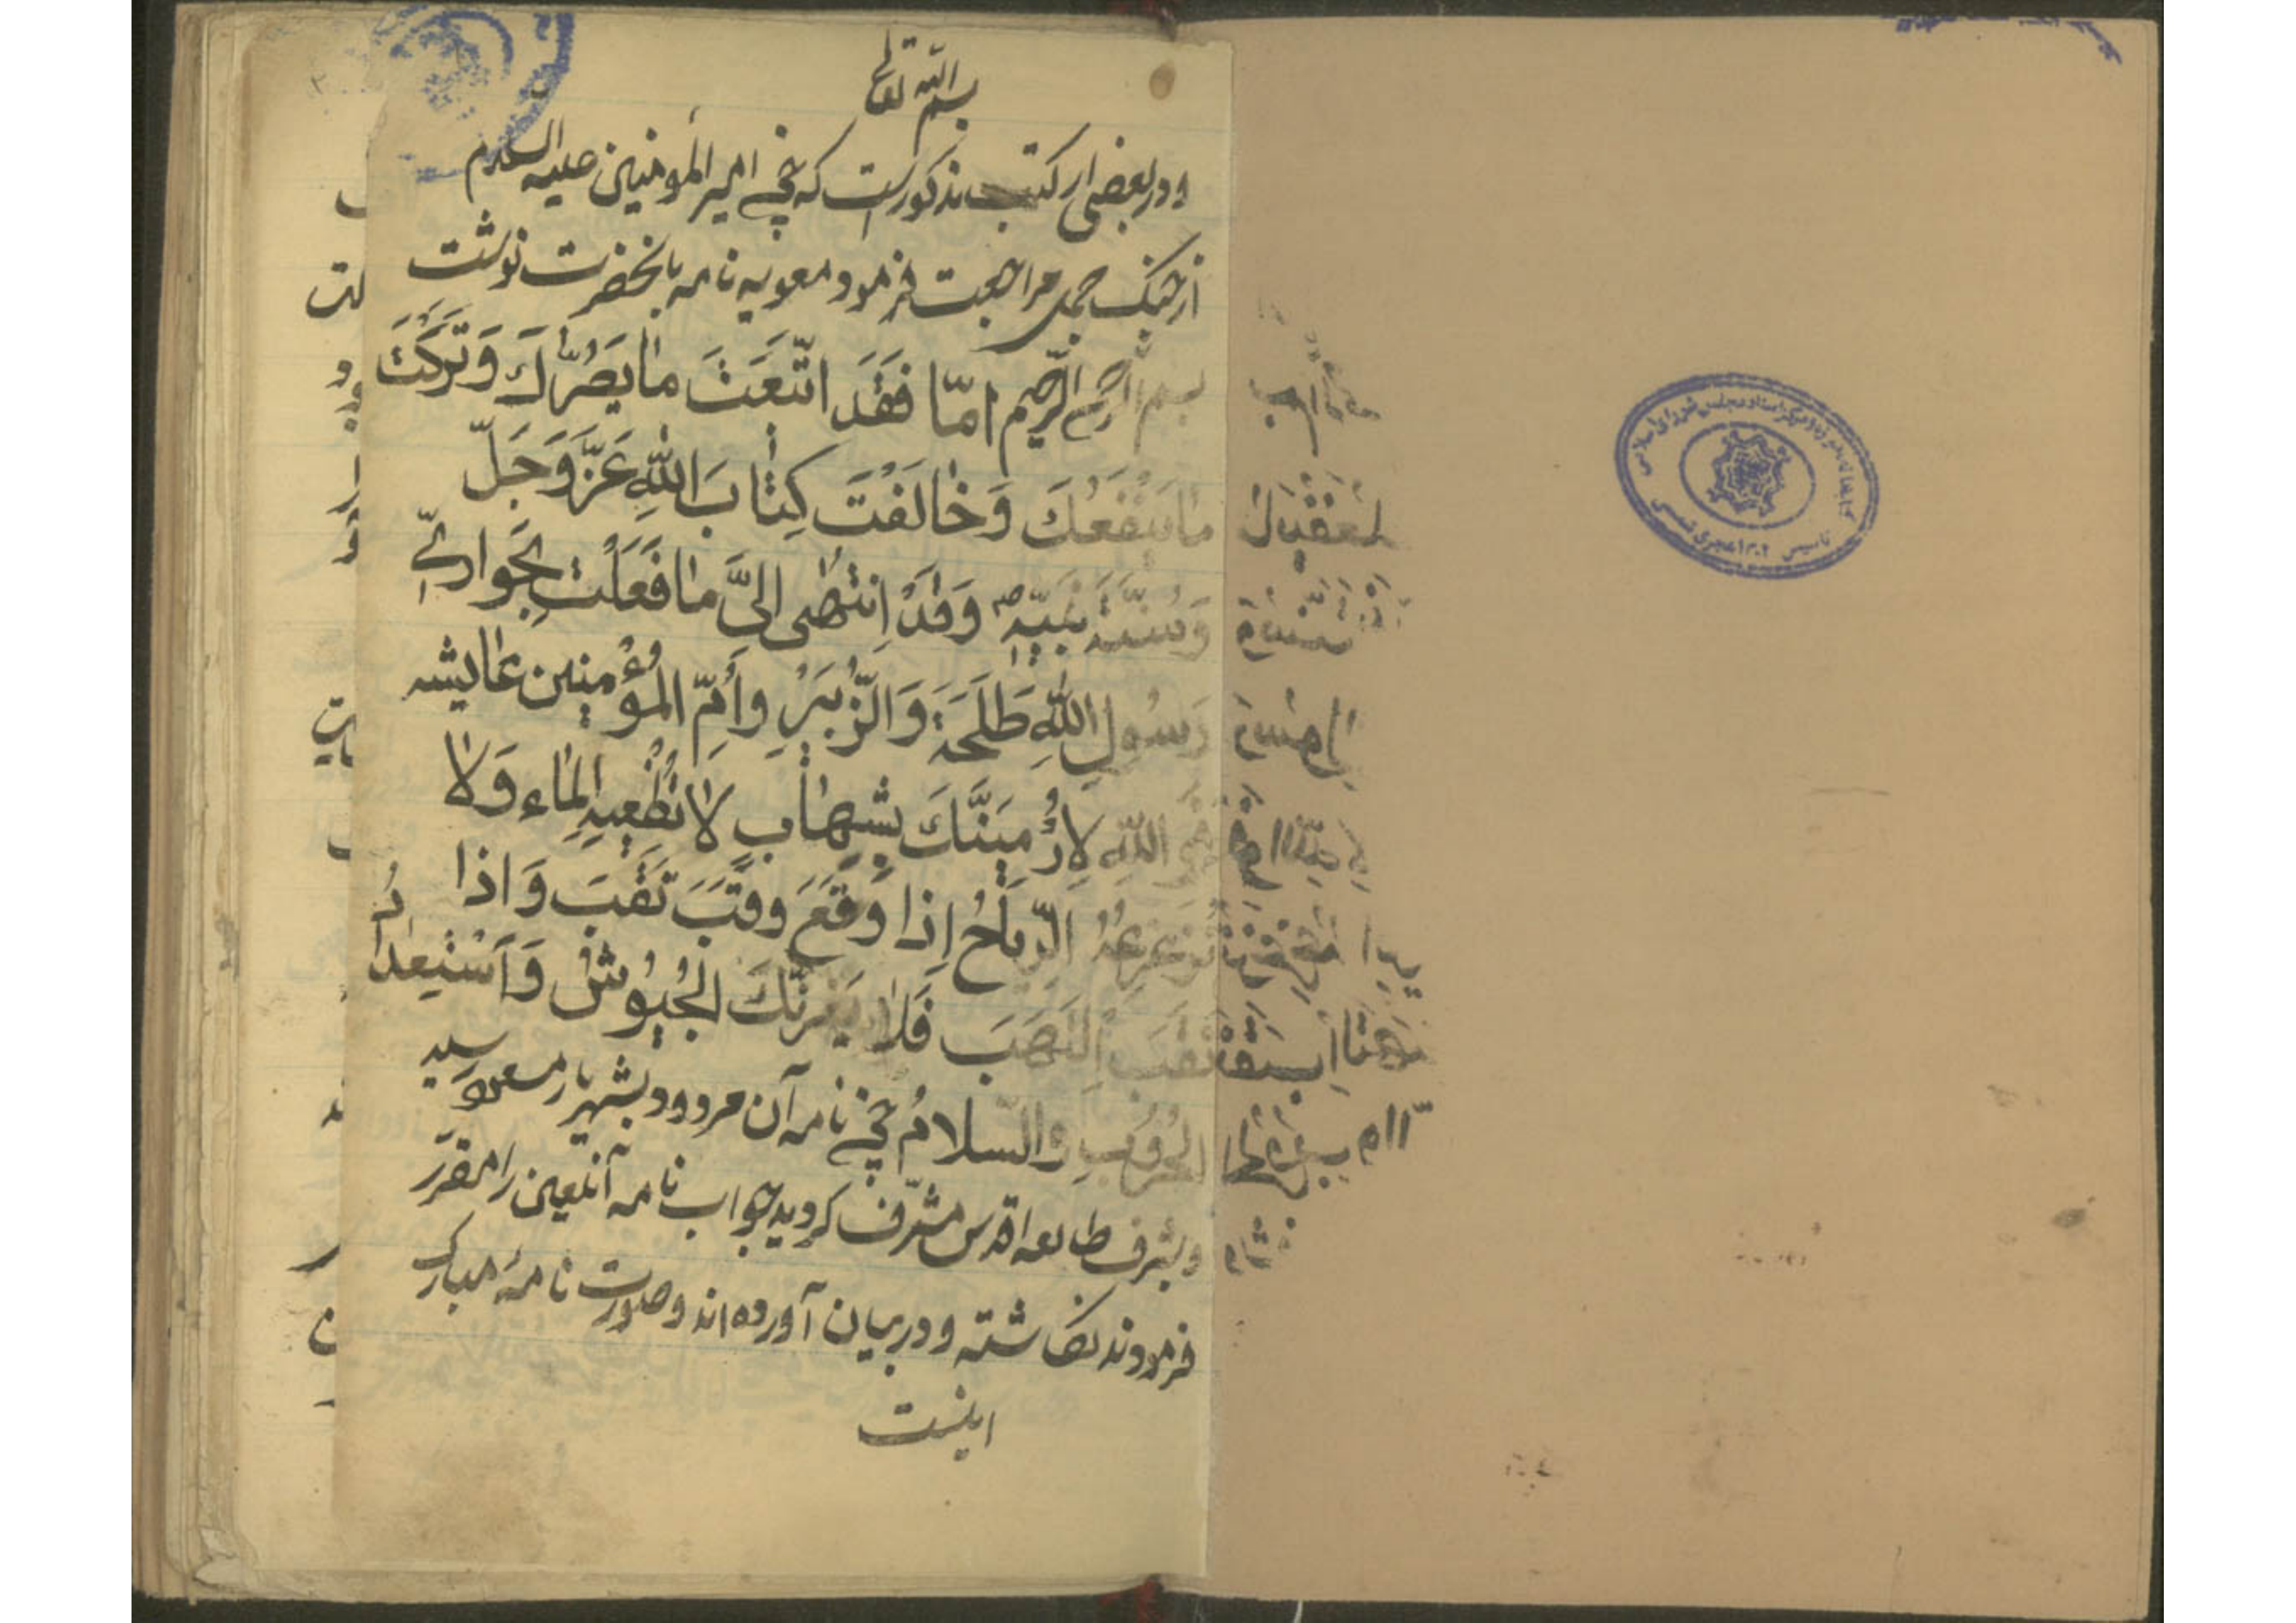 بسم الله تعالی
و در بعضی از کتب مذکور است که چون امیر المؤمنین علیه السلام
از جنگ جمل مراجعت فرمود معویه نامه بآنحضرت نوشت
بسم الله الرحمن الرحیم امّا فَقَد اتّبَعتَ مٰا یَضُرُّكَ وَ تَرَكتَ
مٰا یَنْفَعُكَ وَ خٰالَفْتَ كِتٰابَ اللهِ عَزَّ وَ جَلّ
وَ سُنَّةَ نَبیّهِ ص وَ قَدْ اِنتَهٰی اِلیَّ مٰا فَعَلْتَ بِحَوارِیّ
رَسُولِ اللهِ طَلحَةَ وَ الزُّبَیْرِ وَ اُمِّ المُؤْمِنین عٰایشه
اللهِ لَاَرْمِیَنَّكَ بِشِهٰابٍ لاٰ تُطْفِیهِ المٰاء وَ لاٰ
تُزَعزِعُهُ الرّیٰاحُ اِذا وَقَعَ وَقَبَ ثَقَبَ وَ اذا
ثَقَبَ اِلتَهَبَ فَلاٰ یَغُرَّنَّكَ الجُیُوشُ وَ اَسْتَعِدُّ
الحُرُوبِ والسلامُ چون نامه آن مردود بشهریار معمو رسید
و بشرف مطالعه اقدس مشرّف کردید جواب نامه آنلعین را مقرّر
فرمودند نکاشته و در بیان آورده اند و صورت نامهٔ مبارک
اینست